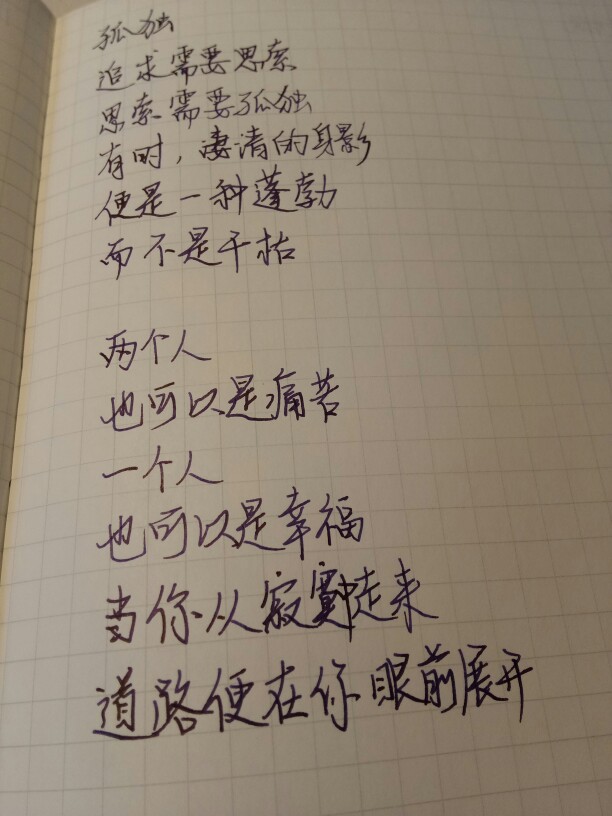 孤独
追求需要思索
思索需要孤独
有时，凄清的身影
便是一种蓬勃
而不是干枯
两个人
也可以是痛苦
一个人
也可以是幸福
当你从寂寞中走来
道路便在你眼前展开